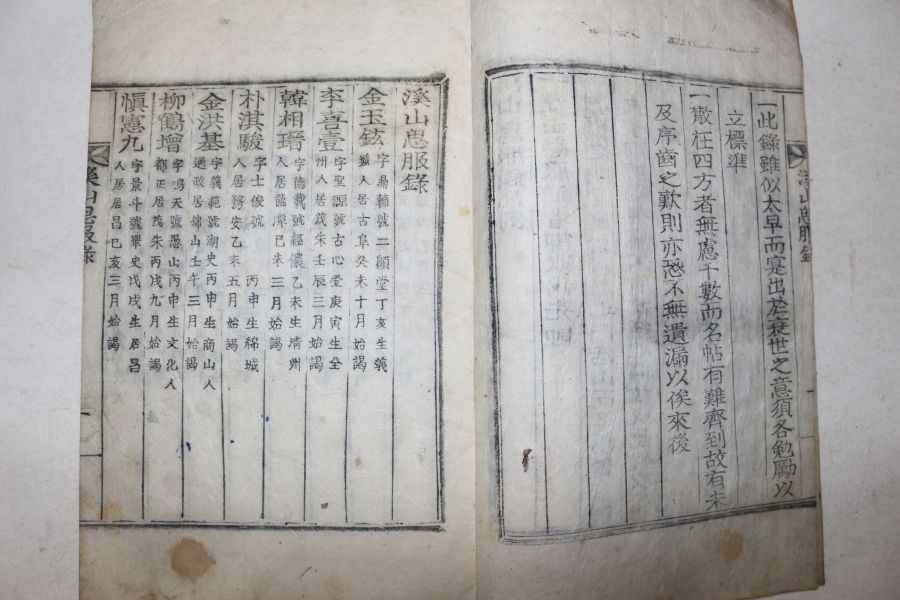 一此錄雖似太早而寔出於衰世之意須各勉勵以
立標準
一散在四方者無慮千數而名帖有難齊到故有未
及序齒之歎則亦恐不無遺漏以俟來後
溪山思服錄
溪山思服錄
金玉鉉 字鼎輔號二顧堂丁亥生義
城人居古阜癸未十月始謁
李喜壹 字聖源號古心堂庚寅生全
州人居茂朱壬辰三月始謁
韓相瑨 字德載號經儂乙未生清州
人居龍潭己未三月始謁
朴淇駿 字士俊號 丙申生綿城
人居務安乙未五月始謁
金洪基 字義範號湖史丙申生商山人
通政居錦山壬午三月始謁
柳鶴增 字鳴天號愚山丙申生文化人
都正居茂朱丙戌九月始謁
愼憲九 字景斗號翠史戊戌生居昌
人居居昌己亥三月始謁
溪山思服錄
一